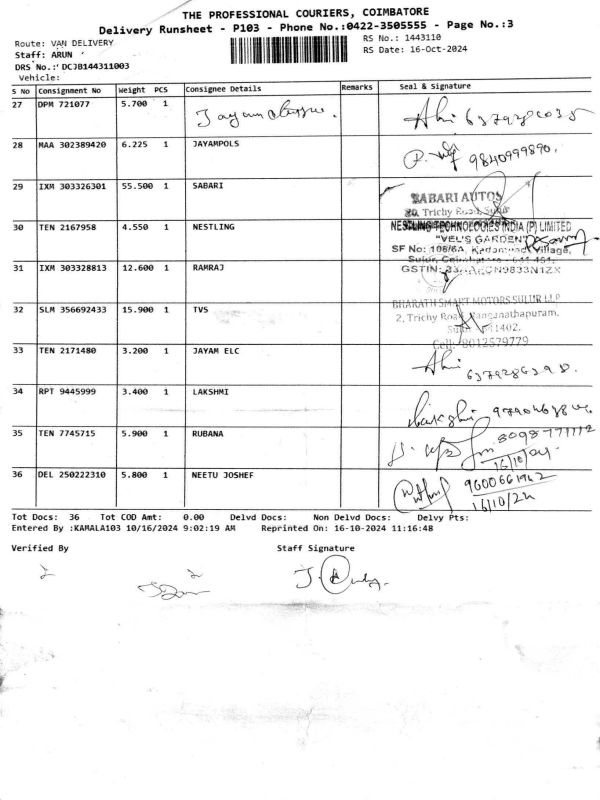 THE PROFESSIONAL COURIERS, COIMBATORE
Delivery Runsheet - P103 - Phone No.:0422-3505555 - Page No.:3
Route: VAN DELIVERY
RS No.: 1443110
Staff: ARUN
RS Date: 16-Oct-2024
DRS No.: DCJB144311003
Vehicle:
S No Consignment No Weight PCS Consignee Details Remarks Seal & Signature
27 DPM 721077 5.700 1
28 MAA 302389420 6.225 1 JAYAMPOLS 9840999890.
29 IXM 303326301 55.500 1 SABARI SABARI AUTOS
20, Trichy Road, Sulur
30 TEN 2167958 4.550 1 NESTLING NESTLING TECHNOLOGIES INDIA (P) LIMITED
"VEL'S GARDEN"
SF No: 108/6A, Village,
Sulur, Coimbatore
31 IXM 303328813 12.600 1 RAMRAJ GSTIN:
BHARATH SMART MOTORS SULUR LLP
32 SLM 356692433 15.900 1 TVS 2, Trichy Road, Ranganathapuram,
Cell: 8012579779
33 TEN 2171480 3.200 1 JAYAM ELC
34 RPT 9445999 3.400 1 LAKSHMI
35 TEN 7745715 5.900 1 RUBANA
16/10/24
36 DEL 250222310 5.800 1 NEETU JOSHEF 9600661942
16/10/24
Tot Docs: 36 Tot COD Amt: 0.00 Delvd Docs: Non Delvd Docs: Delvy Pts:
Entered By :KAMALA103 10/16/2024 9:02:19 AM Reprinted On: 16-10-2024 11:16:48
Verified By Staff Signature